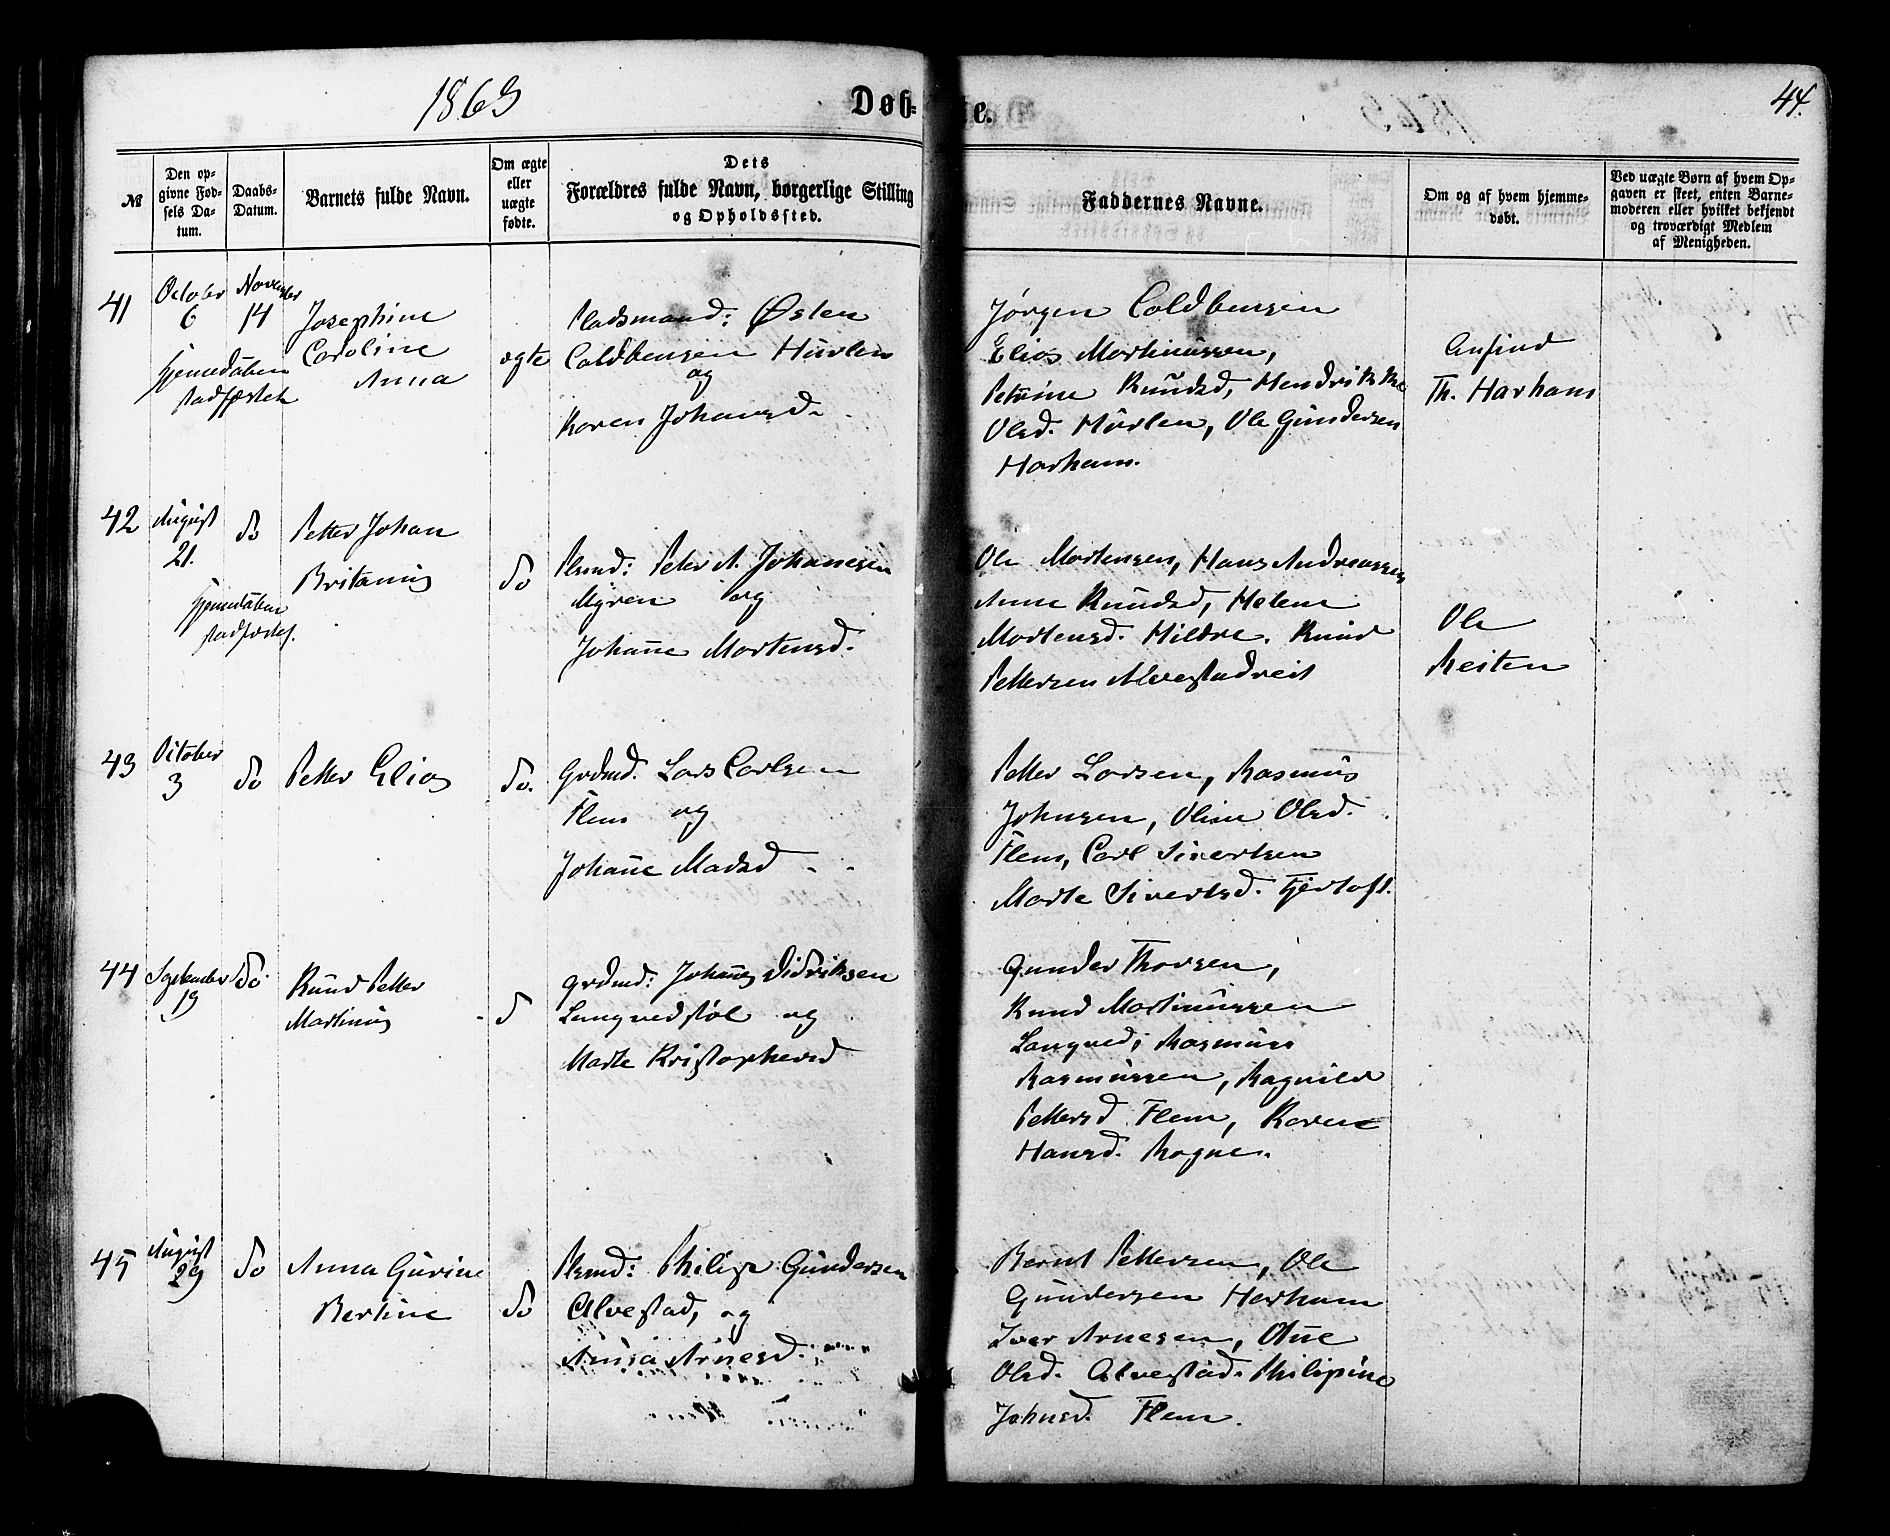 1863
Døb-
te.
44.
№
Den op-
givne Fød-
sels Da-
tum.
Daabs-
Datum.
Barnets fulde Navn.
Om ægte
eller
uægte
fødte.
Dets
Forældres fulde Navn, borgerlige Stilling
og Opholdssted.
Faddernes Navne.
Om og af hvem hjemme-
døbt.
Ved uægte Børn af hvem Op-
gaven er skeet, enten Barne-
moderen eller hvilket bekjendt
og troværdigt Medlem
af Menigheden.
41
October
6
November
14
hjemedåben
stadfæstet
Josephine
Caroline
Anna
ægte
Pladsmand: Østen
Coldbensen Hurlen
og
Karen Johansd.
Jørgen Coldbensen
Elias Martinussen,
Petrine Knudsd, Hendrikke
Olsd. Hurlen, Ole Gundersen
Harham.
Anfind
Th. Harham
42
August
21.
do
hjemedåben
stadfæstet.
Petter Johan
Britanus
do
Plsmd: Peter A. Johanesen
Myren og
Johanne Mortensd.
Ole Mortensen, Hans Andreassen
Anne Knudsd, Helene
Mortensd. Hildre. Knud
Pettersen Alvestadreit
Ole
Reiten
43
October
3
do
Petter Elias
do.
Grdmd. Lars Carlsen
Flem og
Johanne Madsd
Petter Larsen, Rasmus
Johnsen, Oline Olsd.
Flem, Carl Sivertsen
Marte Sivertsd. Fjertoft.
44
September
19
do
Knud Petter
Martinus
d
Grdmd: Johannes Didriksen
Langvedstøl og
Marte Kristophersd
Gunder Thorsen,
Knud Martinussen
Langved; Rasmus
Rasmussen, Ragnild
Pettersd Flem, Karen
Hansd. Rogne.
45
August
29
do
Anna Gurine
Bertine
do
Plsmd: Philip Gundersen
Alvestad, og
Anna Arnesd.
Bernt Pettersen, Ole
Gundersen Harham
Iver Arnesen, Ane
Olsd. Alvestad. Philipine
Johnsd. Flem.